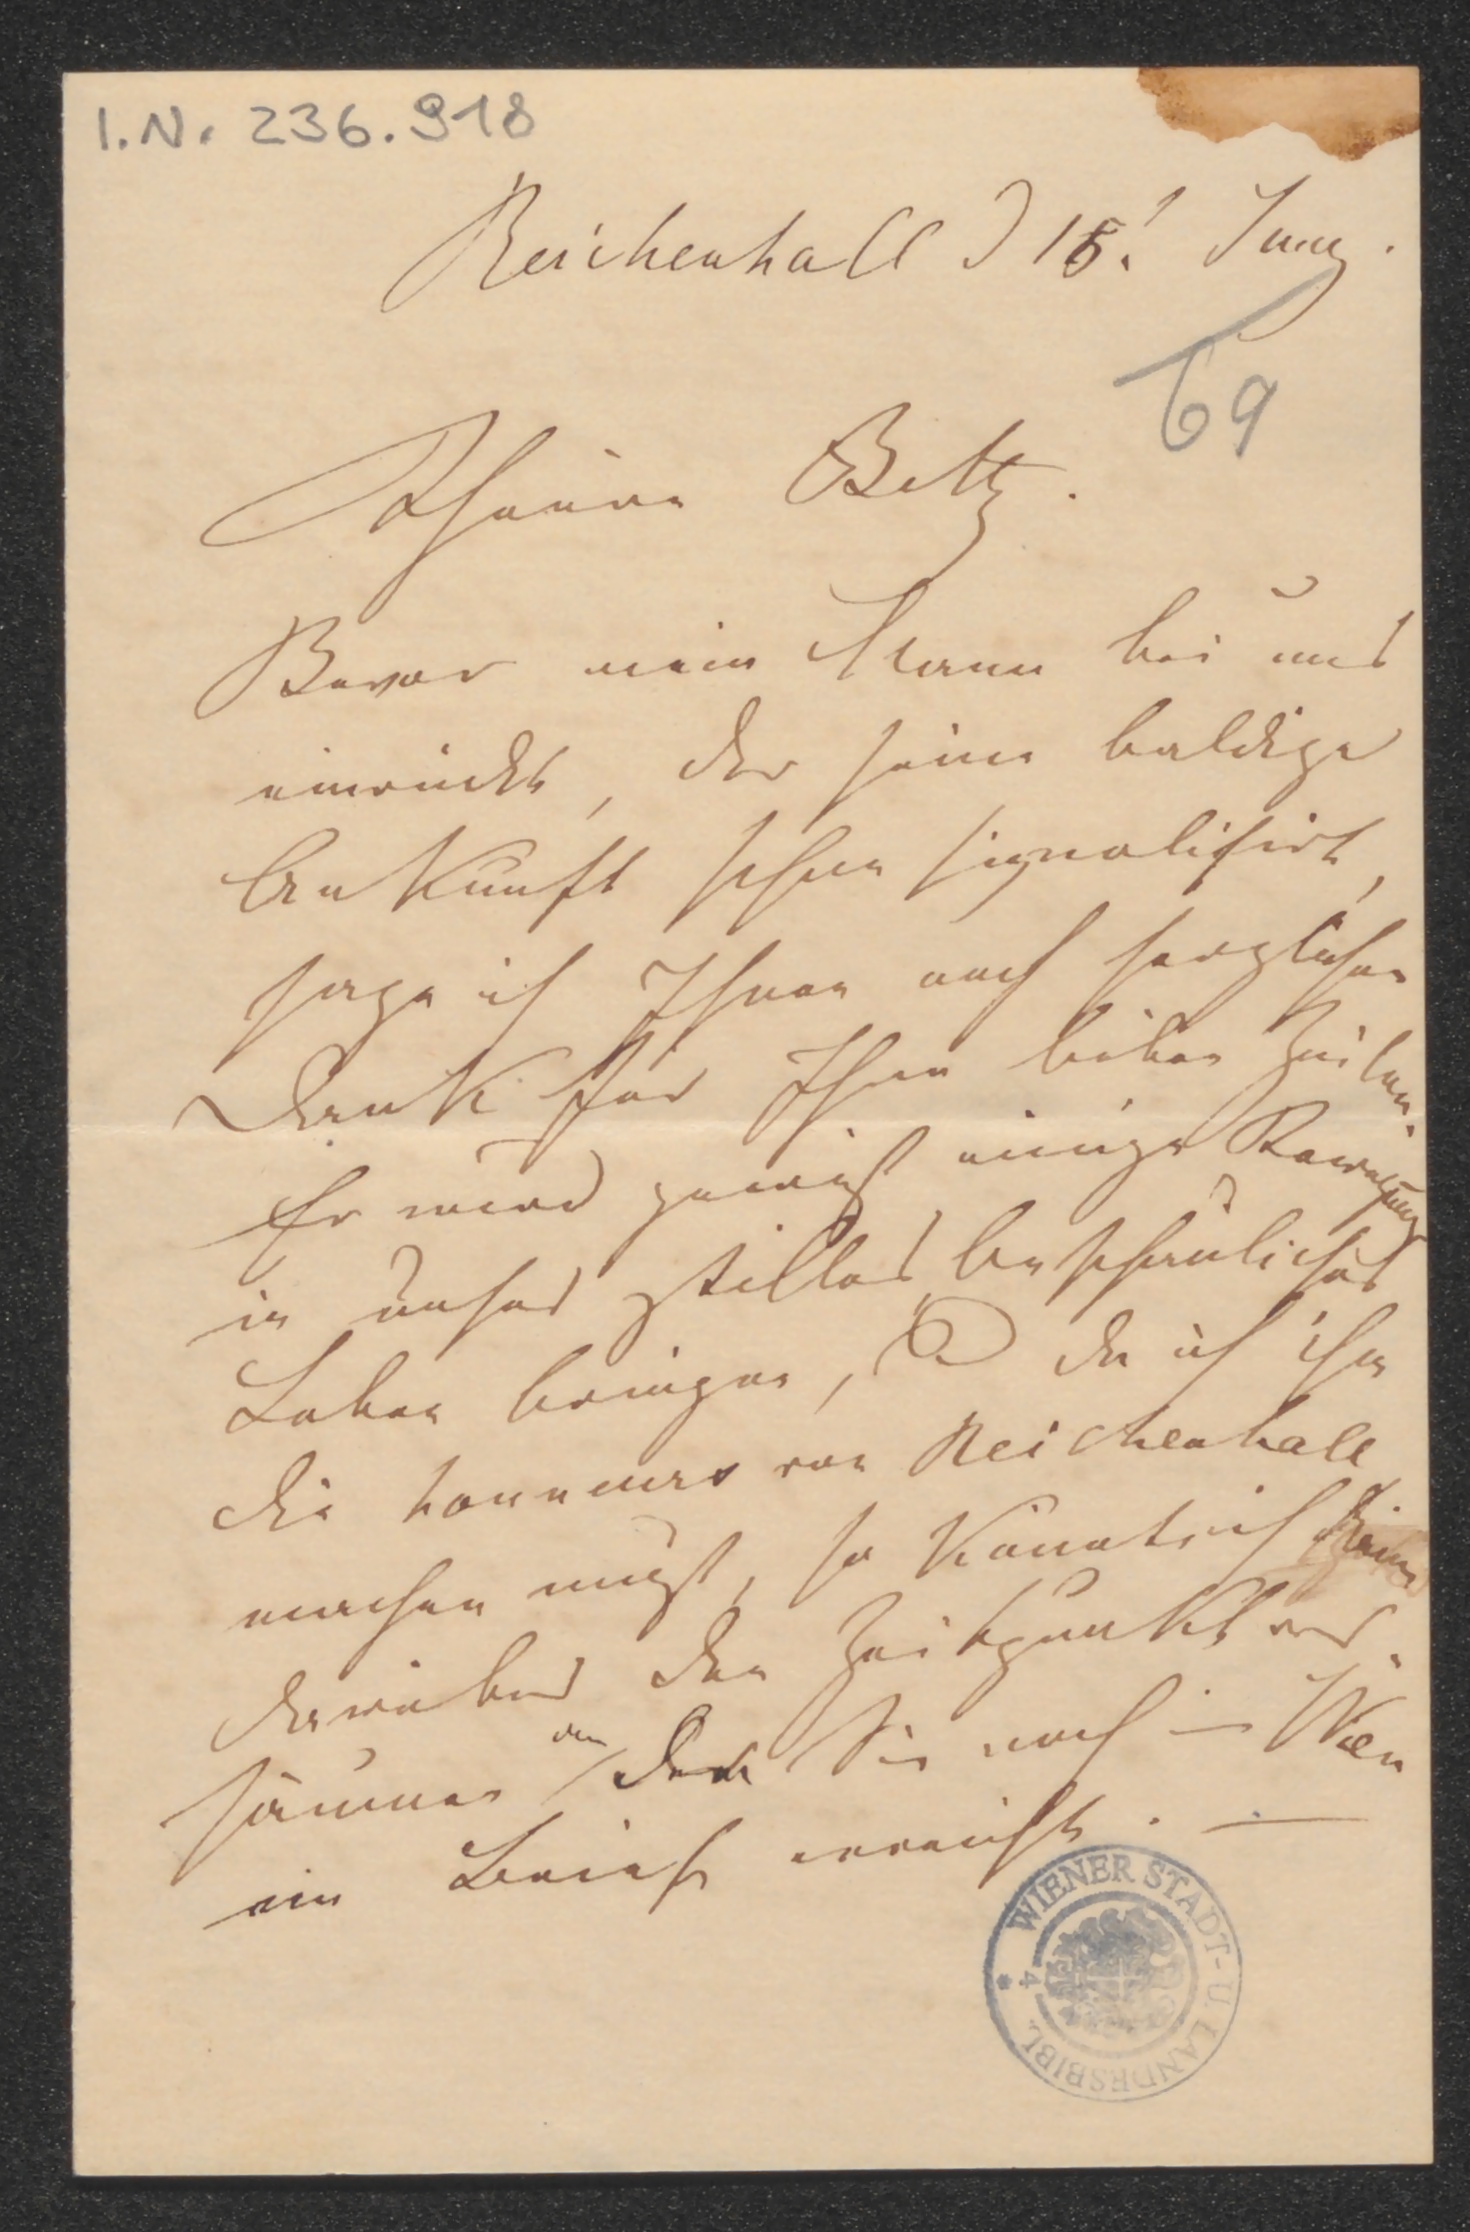 I.N. 236.918
Reichenhall d 15t Juny.
69
Theure Betty.
Bevor mein Mann bei uns
einrückt, der seine baldige
Ankunft schon signalisirt,
sage ich Ihnen noch herzlichen
Dank für Ihre lieben Zeilen.
Er wird gewiß einige Bewegung
in unser stilles beschauliches
Leben bringen, da ich ihm
die honneurs von Reichenhall
machen muß, so könnte ich
darüber den Zeitpunkt ver
säumen an dem Sie noch in Wien
ein Brief erreicht. —
WIENER STADT- U. LANDESBIBL.